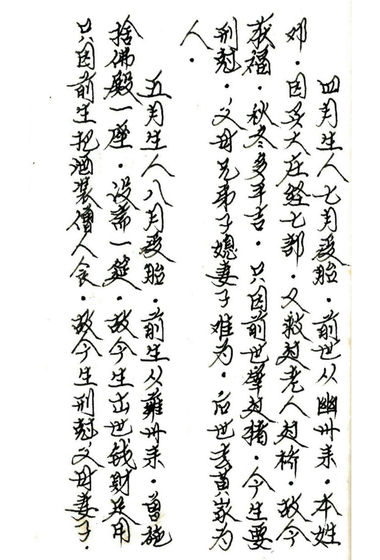 四月生人七月受胎·前世从幽州来·本姓
邓·因多大庄经七部·又救过老人过桥·故今
衣福·秋冬多平吉·只因前世宰过猪·今生要
刑克·父母兄弟子媳妻子难为·后世去黄家为
人·
五月生人八月受胎·前生从雍州来·曾施
捨佛殿一座·设斋一筵·故今生出世钱财足用
只因前生把酒裝僧人食·故今生刑尅父母妻子·